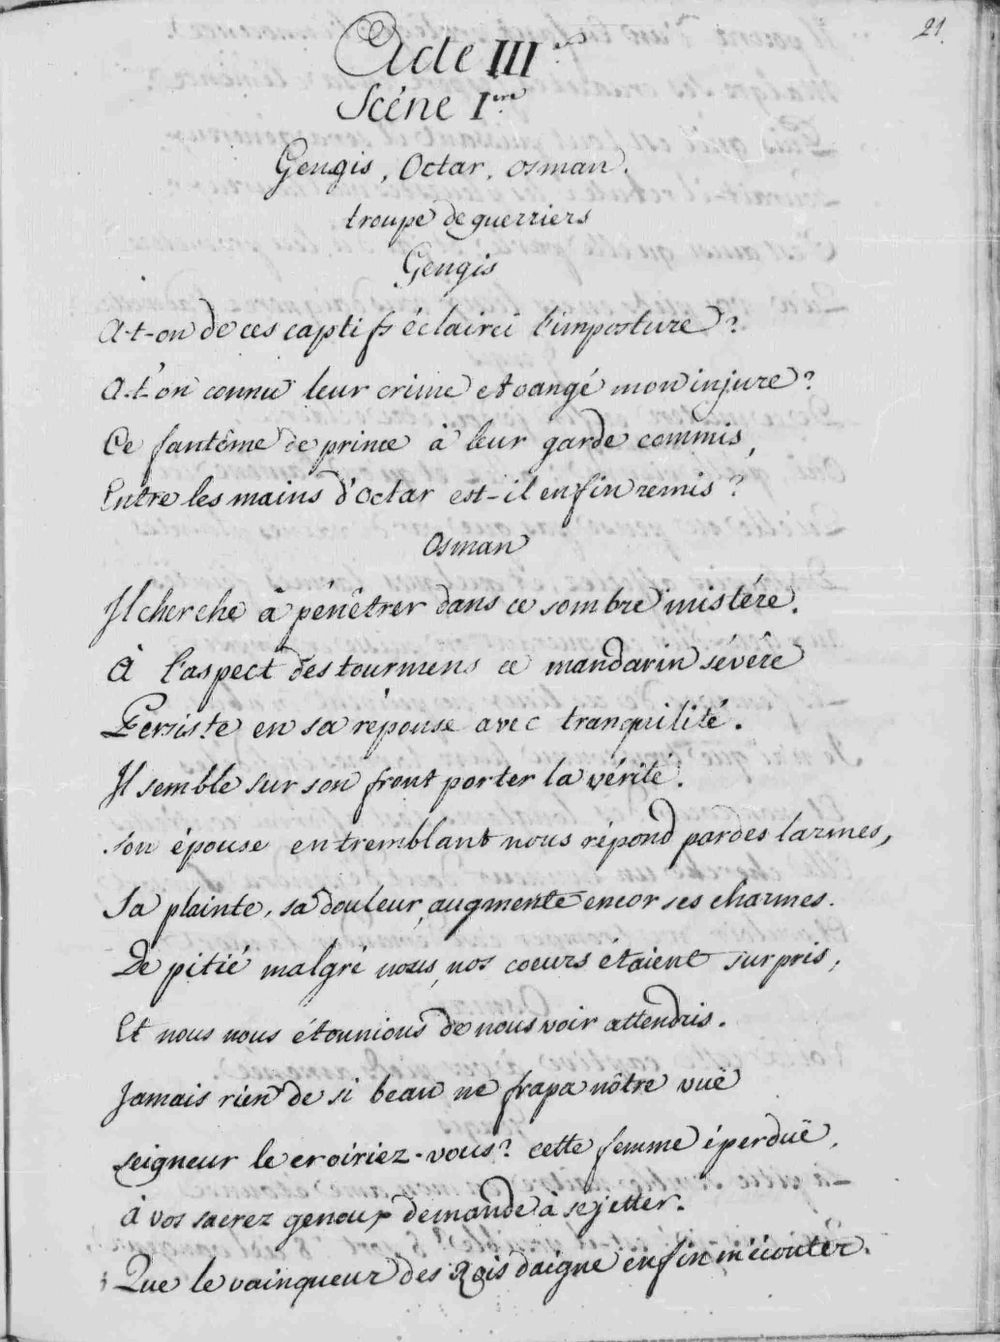 21.
Acte III
Scéne I.ere
Gengis, Octar, osman.
troupe de guerriers
Gengis
A-t-on de ces captifs éclairci l'imposture?
A-t'on connu leur crime et vangé mon injure?
Ce fantôme de prince à leur garde commis,
Entre les mains d'Octar est-il enfin remis?
Osman
Il cherche à pénêtrer dans ce sombre mistére.
À l'aspect des tourmens ce mandarin sévêre
Persiste en sa réponse avec tranquilité.
Il semble sur son front porter la vérité.
Son épouse en tremblant nous répond par des larmes,
Sa plainte, sa douleur, augmente encor ses charmes.
De pitié malgré nous, nos coeurs étaient surpris,
Et nous nous étonnions de nous voir attendris.
Jamais rien de si beau ne frapa nôtre vuë
Seigneur le croiriez-vous? cette femme éperduë,
à vos sacrez genoux demande à se jetter.
Que le vainqueur des Rois daigne enfin m'écouter.